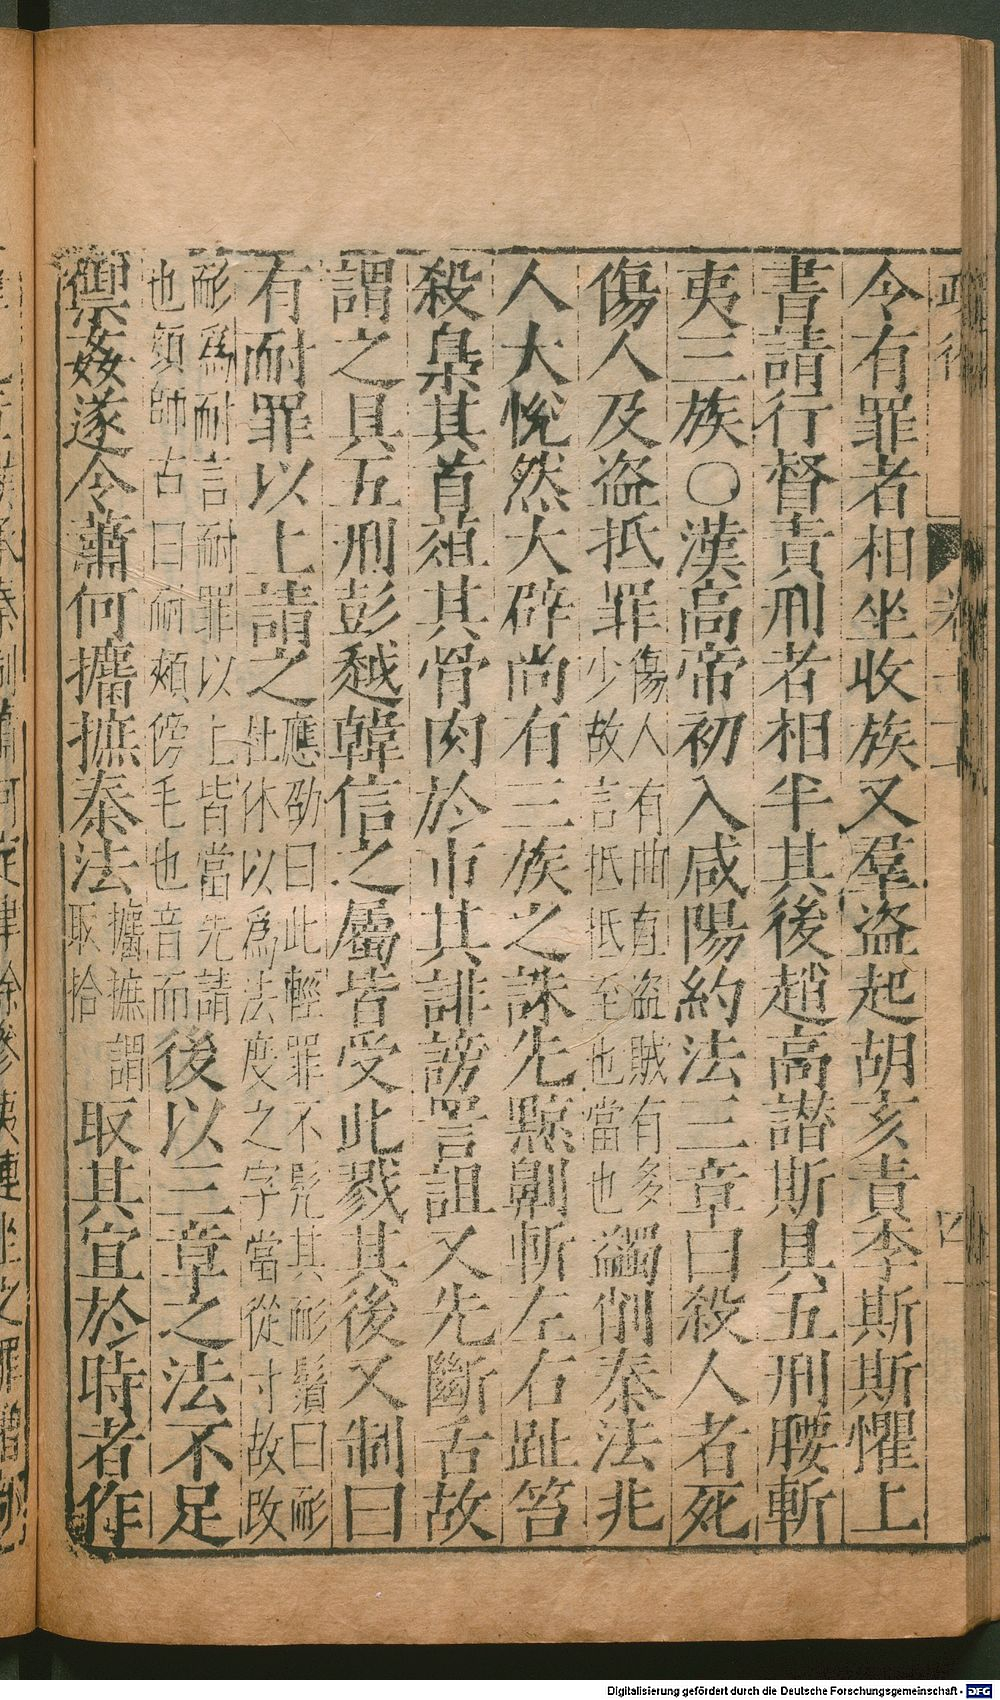 令有罪者相坐收族又羣盗起胡亥責李斯斯懼上
書請行督責刑者相半其後趙高譛斯具五刑腰斬
夷三族〇漢高帝初入咸陽約法三章曰殺人者死
傷人及盗抵罪傷人有曲直盗賊有多少故言抵抵至也當也蠲削秦法兆
人大悅然大辟尚有三族之誅先黥劓斬左右趾笞
殺梟其首葅其骨肉於市其誹謗詈詛又先斷舌故
謂之具五刑彭越韓信之屬皆受此戮其後又制曰
有耐罪以上請之應劭曰此輕罪不髠其耏鬚曰耏杜休以爲法度之字當從寸故改
耏爲耐言耐罪以上皆當先請也顏師古曰耐頰傍毛也音而後以三章之法不足
禦姦遂令蕭何攟摭秦法攟摭謂取拾取其宜於時者作
Digitalisierung gefördert durch die Deutsche Forschungsgemeinschaft - DFG